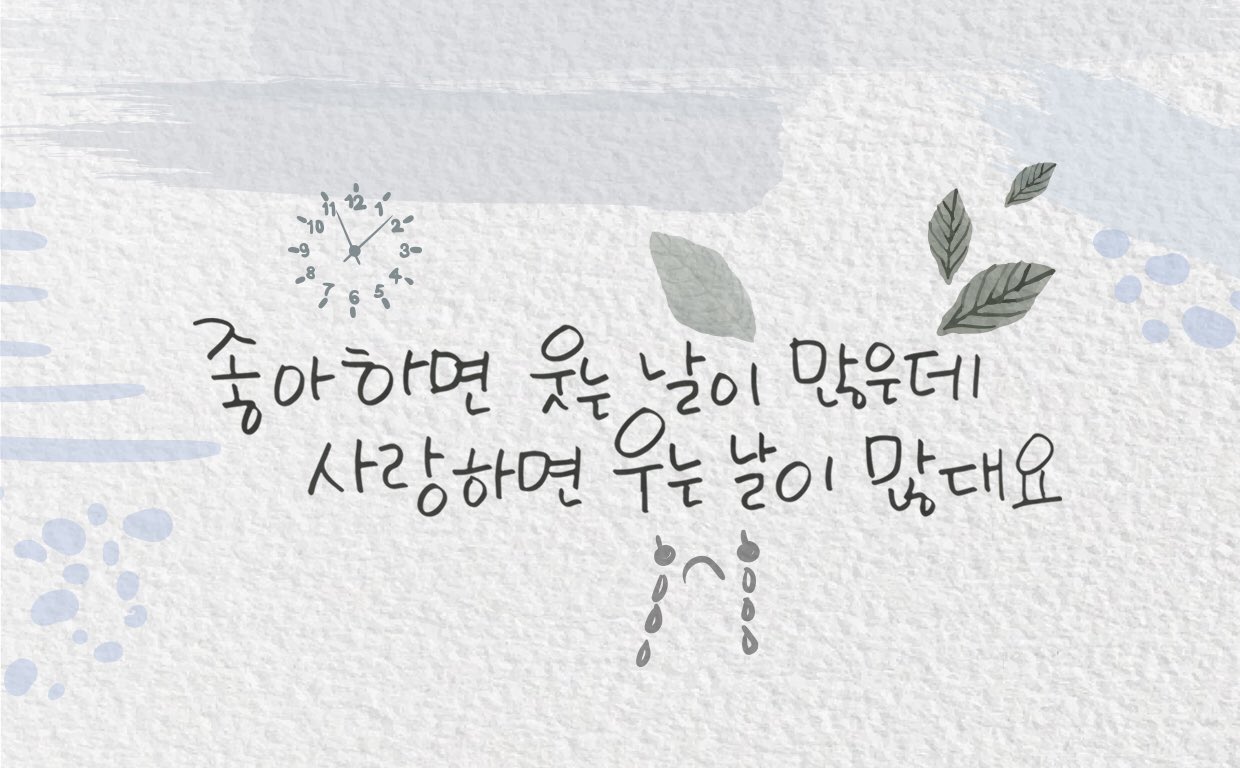 12
11 1
10 2
9 3
8 4
7 5
6
좋아하면 웃는 날이 많은데
사랑하면 우는 날이 많대요